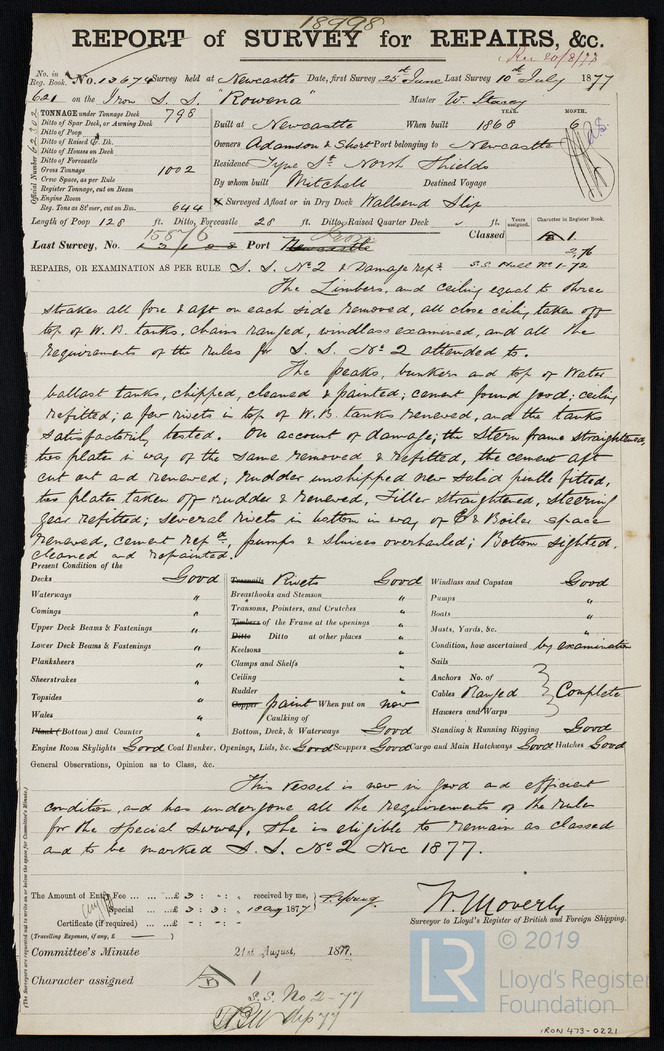 18998
REPORT of SURVEY for REPAIRS, &c.
Rec 20/8/77
No. in Reg. Book. No. 13679 Survey held at Newcastle Date, first Survey 25th June Last Survey 10th July 1877
621 on the Iron S. S. "Rowena" Master W. Stacey
TONNAGE under Tonnage Deck 798
Ditto of Spar Deck, or Awning Deck
Ditto of Poop
Ditto of Raised Q. Dk.
Ditto of Houses on Deck
Ditto of Forecastle
Gross Tonnage 1002
Crew Space, as per Rule
Register Tonnage, cut on Beam
Engine Room
Reg. Tons as St'mer, cut on Bm. 644
Official Number
YEAR. MONTH.
Built at Newcastle When built 1868 6
Owners Adamson & Short Port belonging to Newcastle
Residence Tyne St North Shields
By whom built Mitchell Destined Voyage
If Surveyed Afloat or in Dry Dock Wallsend Slip
Length of Poop 128 ft. Ditto, Forecastle 28 ft. Ditto, Raised Quarter Deck ft.
Years assigned. Character in Register Book.
Last Survey, No. 15876 Port Newcastle Iron Classed A 1
2,76
REPAIRS, OR EXAMINATION AS PER RULE S. S. No 2 & Damage reps S.S. Hull No 1-72
The Limbers, and ceiling equal to three
strakes all fore & aft on each side removed, all close ceiling taken off
top of W. B. tanks, chains ranged, windlass examined, and all the
requirements of the rules for S. S. No 2 attended to.
The peaks, bunkers and top of Water
ballast tanks, chipped, cleaned & painted; cement found good; ceiling
refitted; a few rivets in top of W. B. tanks renewed, and the tanks
satisfactorily tested. On account of damage; the Stern frame straightened,
two plates in way of the same removed & refitted, the cement aft
cut out and renewed; rudder unshipped new solid pintle fitted,
two plates taken off rudder & renewed, Tiller straightened, steering
gear refitted; several rivets in bottom in way of E & Boiler space
renewed, cement repd, pumps & sluices overhauled; Bottom sighted,
cleaned and repainted.
Present Condition of the
Decks Good
Waterways "
Comings "
Upper Deck Beams & Fastenings "
Lower Deck Beams & Fastenings "
Planksheers "
Sheerstrakes "
Topsides "
Wales "
Plank (Bottom) and Counter "
Treenails Rivets Good
Breasthooks and Stemson "
Transoms, Pointers, and Crutches "
Timbers of the Frame at the openings "
Ditto Ditto at other places "
Keelsons "
Clamps and Shelfs "
Ceiling "
Rudder "
Copper paint When put on new
Caulking of
Bottom, Deck, & Waterways Good
Windlass and Capstan Good
Pumps "
Boats "
Masts, Yards, &c. "
Condition, how ascertained by examination
Sails
Anchors No. of
Cables Ranged Complete
Hawsers and Warps
Standing & Running Rigging Good
Engine Room Skylights Good Coal Bunker, Openings, Lids, &c. Good Scuppers Good Cargo and Main Hatchways Good Hatches Good
General Observations, Opinion as to Class, &c.
This Vessel is now in good and efficient
condition, and has undergone all the requirements of the rules
for the special survey, She is eligible to remain as classed
and to be marked S. S. No 2 Nwc 1877.
The Amount of Entry Fee ... ...£ : - : received by me,
Special ... ...£ 3 : 3 : . 10 Aug 1877 T. Young.
Certificate (if required) ...£ - : - :
(Travelling Expenses, if any, £ )
W. Moverly
Surveyor to Lloyd's Register of British and Foreign Shipping.
Committee's Minute 21st August, 1877.
Character assigned A 1
S.S. No 2-77
(The Surveyors are requested not to write on or below the space for Committee's Minute.)
LR
© 2019
Lloyd's Register
Foundation
IRON 473-0221